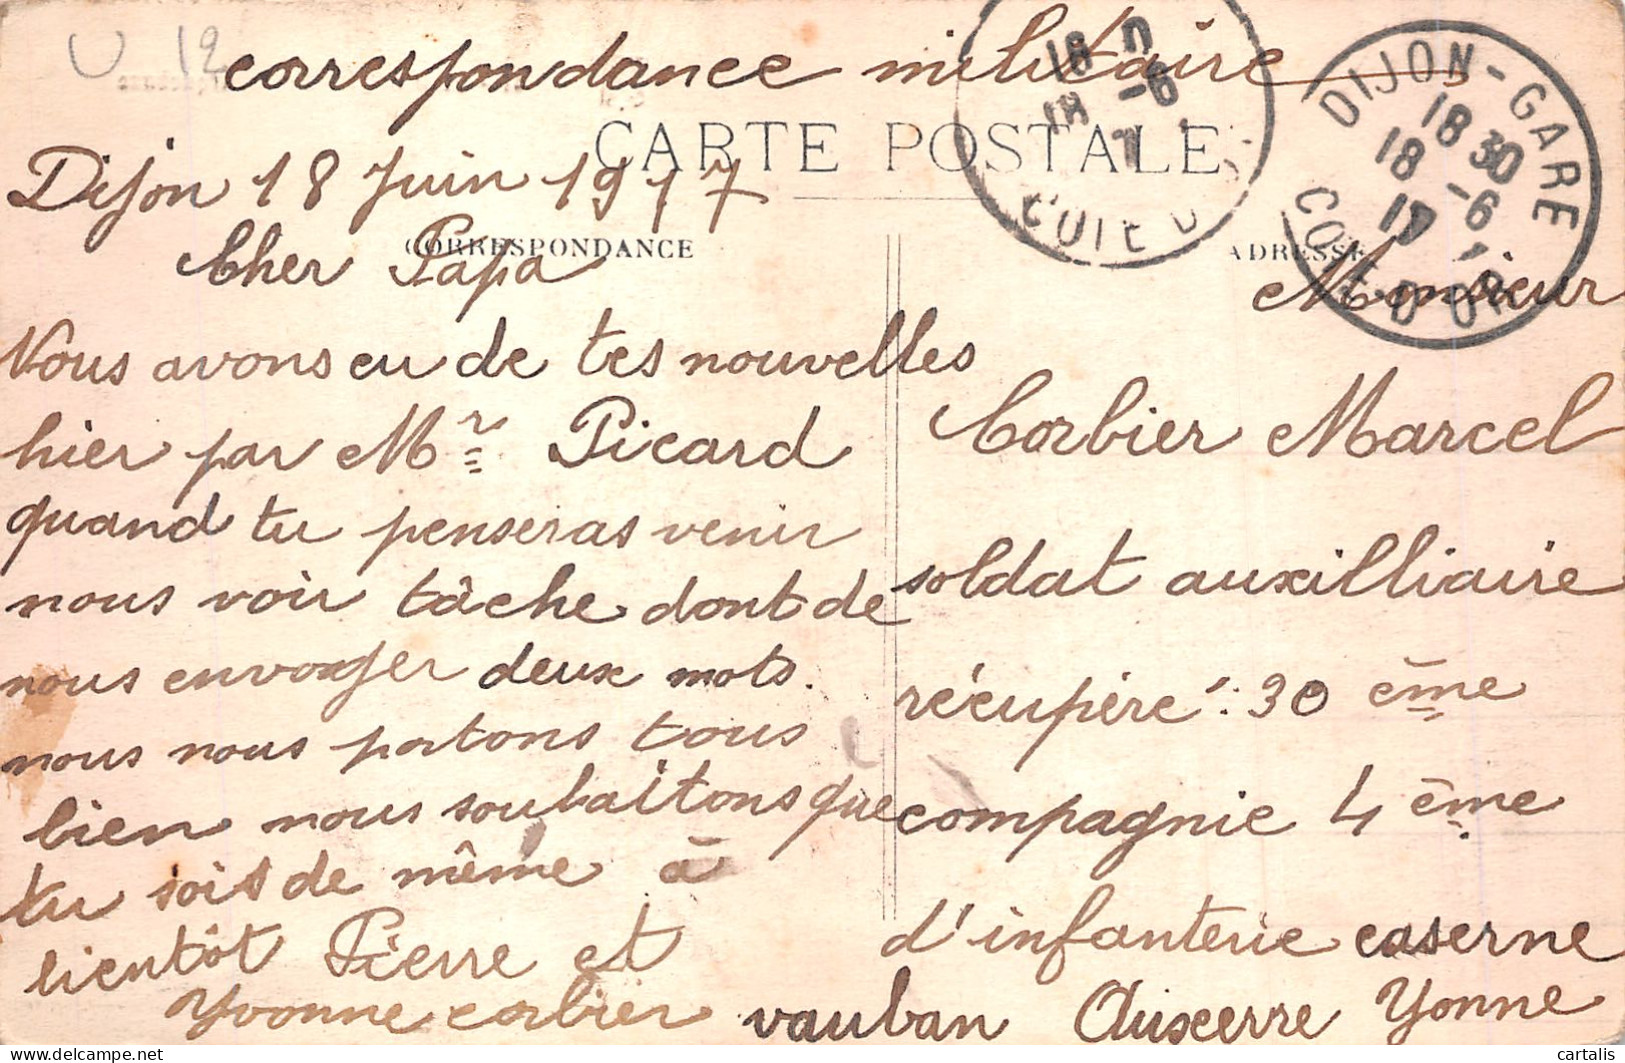 U 12
correspondance militaire
CARTE POSTALE
DIJON-GARE
18 30
18 -6
17
COTE D'OR
Dijon 18 Juin 1917
CORRESPONDANCE
ADRESSE
Cher Papa
Nous avons eu de tes nouvelles
hier par Mr Picard
quand tu penseras venir
nous voir tâche dont de
nous envoyer deux mots.
nous nous portons tous
bien nous souhaitons que
tu sois de même à
bientôt Pierre et
Yvonne corbier
Monsieur
Corbier Marcel
soldat auxilliaire
récupéré : 30 ème
compagnie 4 ème
d'infanterie caserne
vauban Auxerre Yonne
cartalis